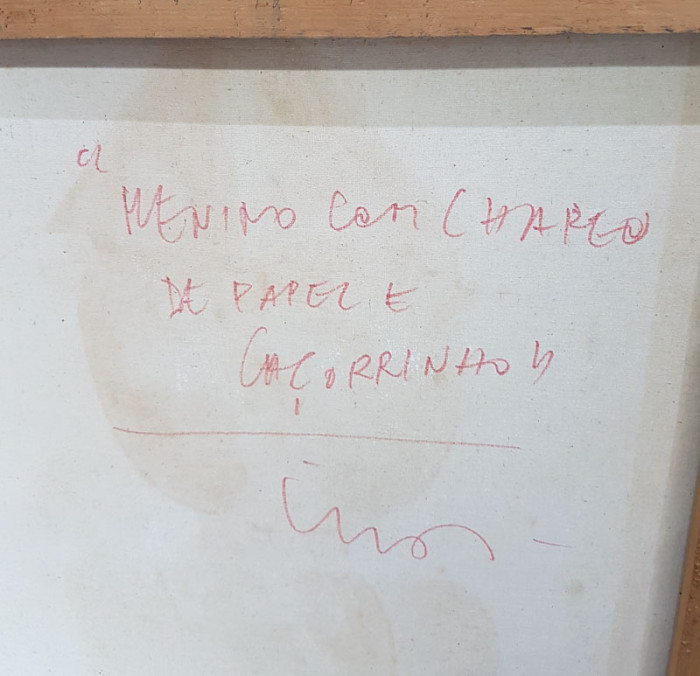 "MENINO COM CHAPEO
DE PAPEL E
CAÇORRINHO"